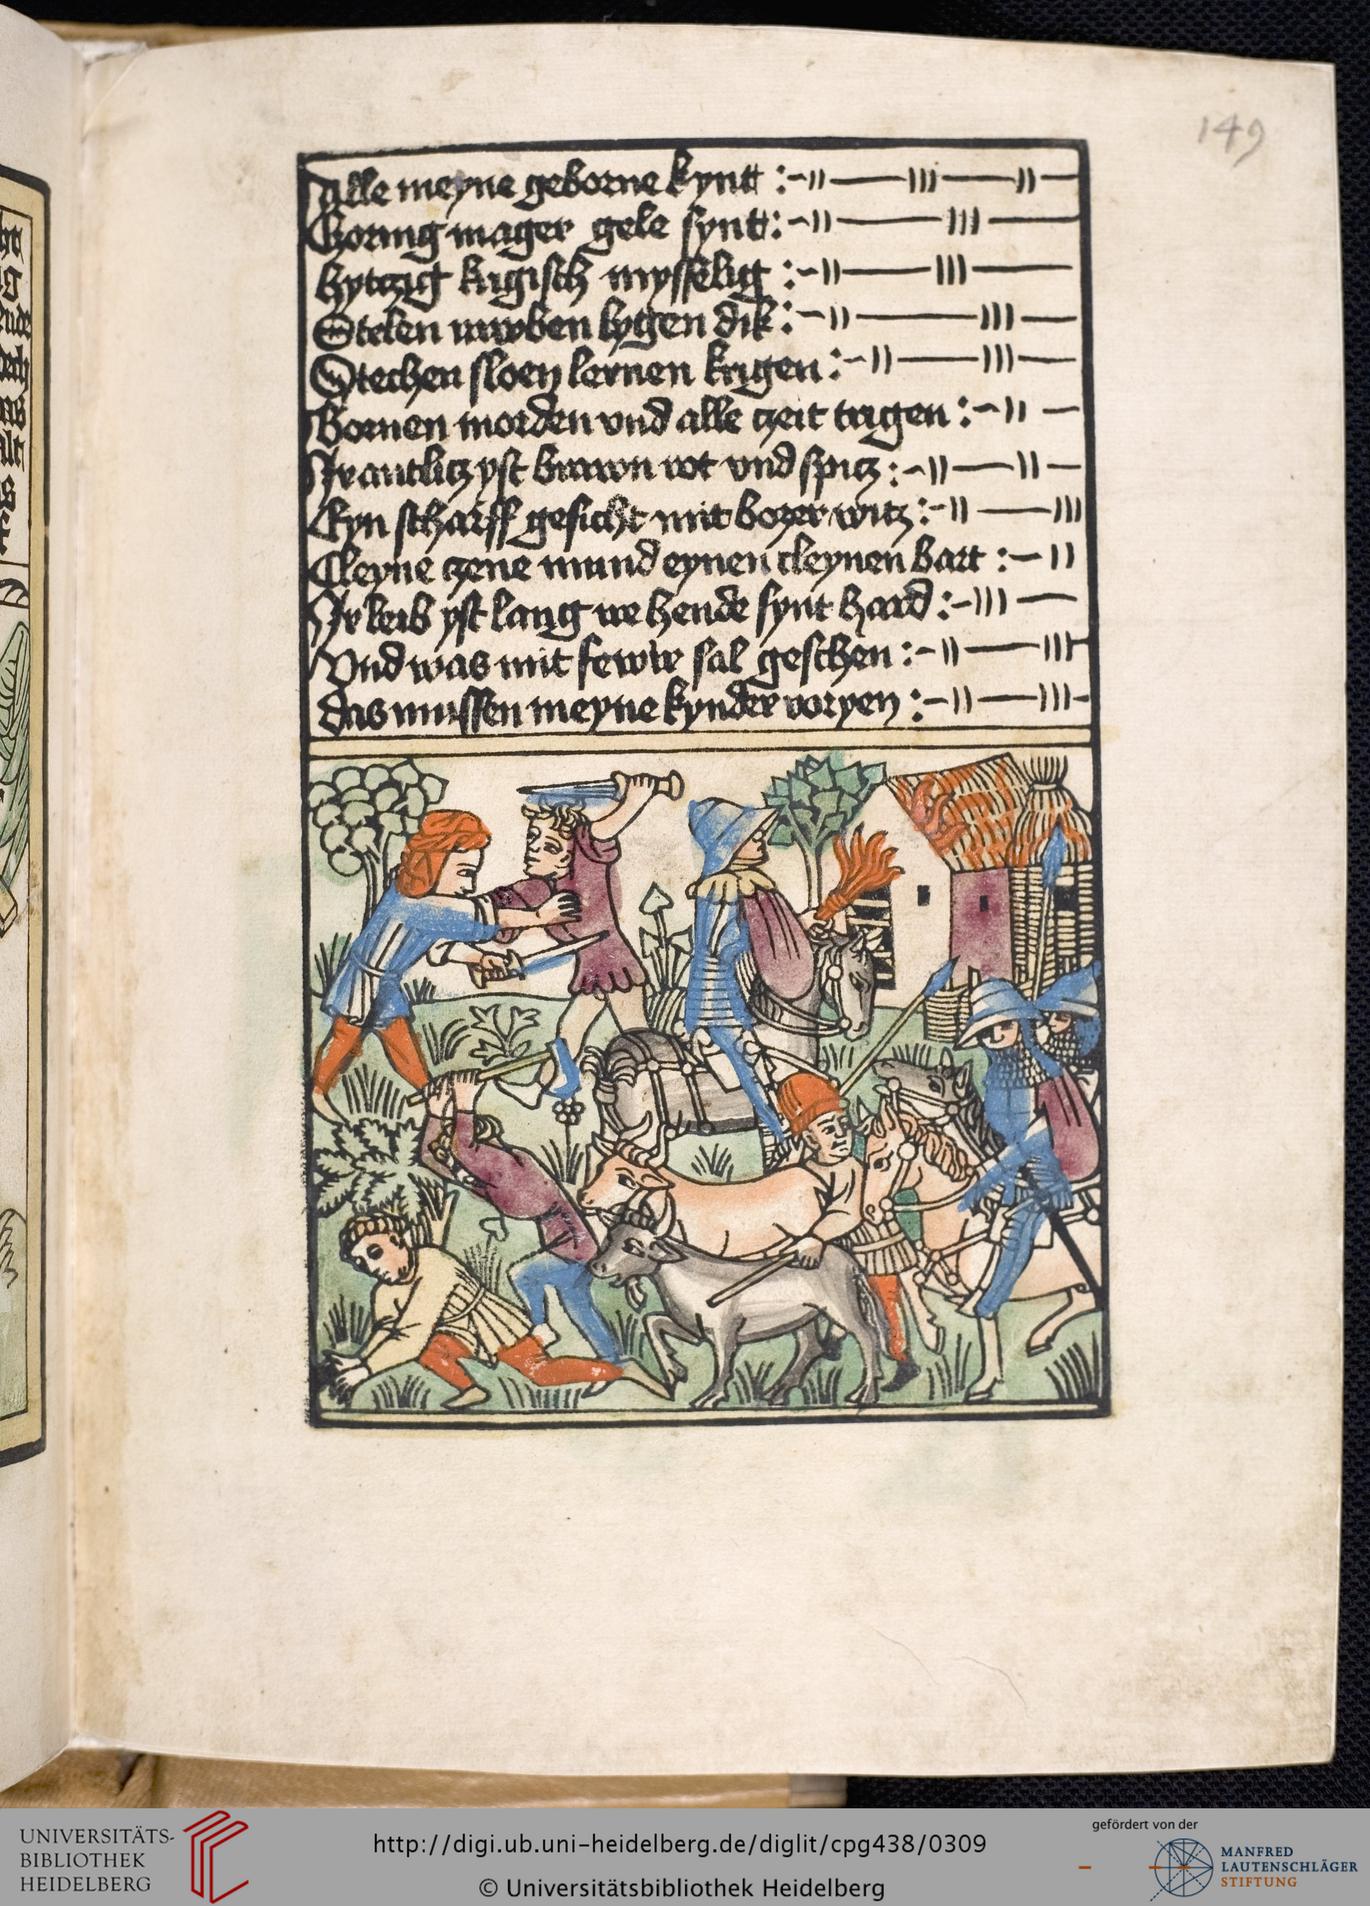 149
Alle meyne geborne kyntt :
Czornig mager gele synt :
hytzig krigisch mysselig :
Stelen rawben lygen dik :
Stechen sloen lernen krigen :
Bornen morden vnd alle czeit trigen :
Ir antlitz yst brawn rot vnd spitz :
Eyn scharff gesicht mit bozer witz :
Cleyne czene mund eynen cleynen bart :
Ir leib yst lang hende synt hard :
Vnd was mit fewer sal geschen :
das mussen meyne kynder voryen :
UNIVERSITÄTS-
BIBLIOTHEK
HEIDELBERG
http://digi.ub.uni-heidelberg.de/diglit/cpg438/0309
© Universitätsbibliothek Heidelberg
gefördert von der
MANFRED
LAUTENSCHLÄGER
STIFTUNG